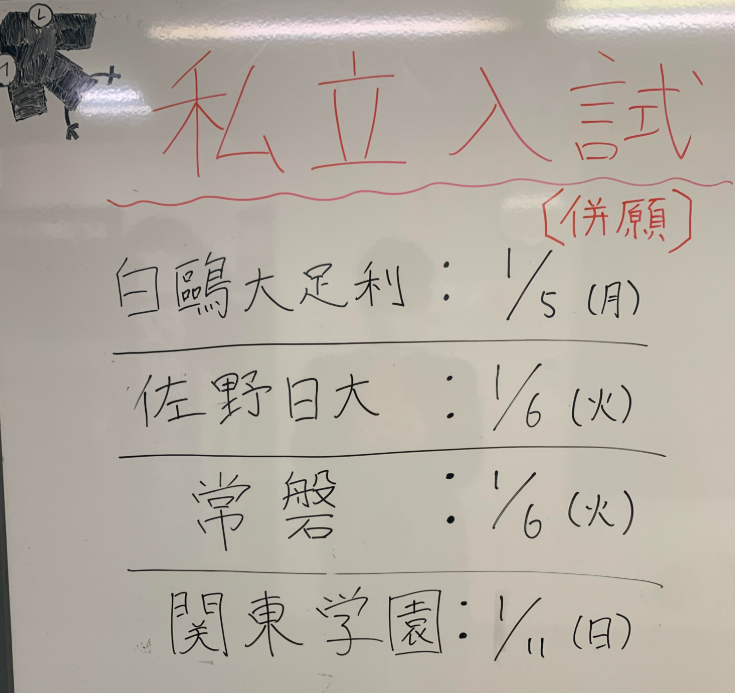 私立入試
〔併願〕
白鷗大足利：1/5（月）
佐野日大：1/6（火）
常磐：1/6（火）
関東学園：1/11（日）